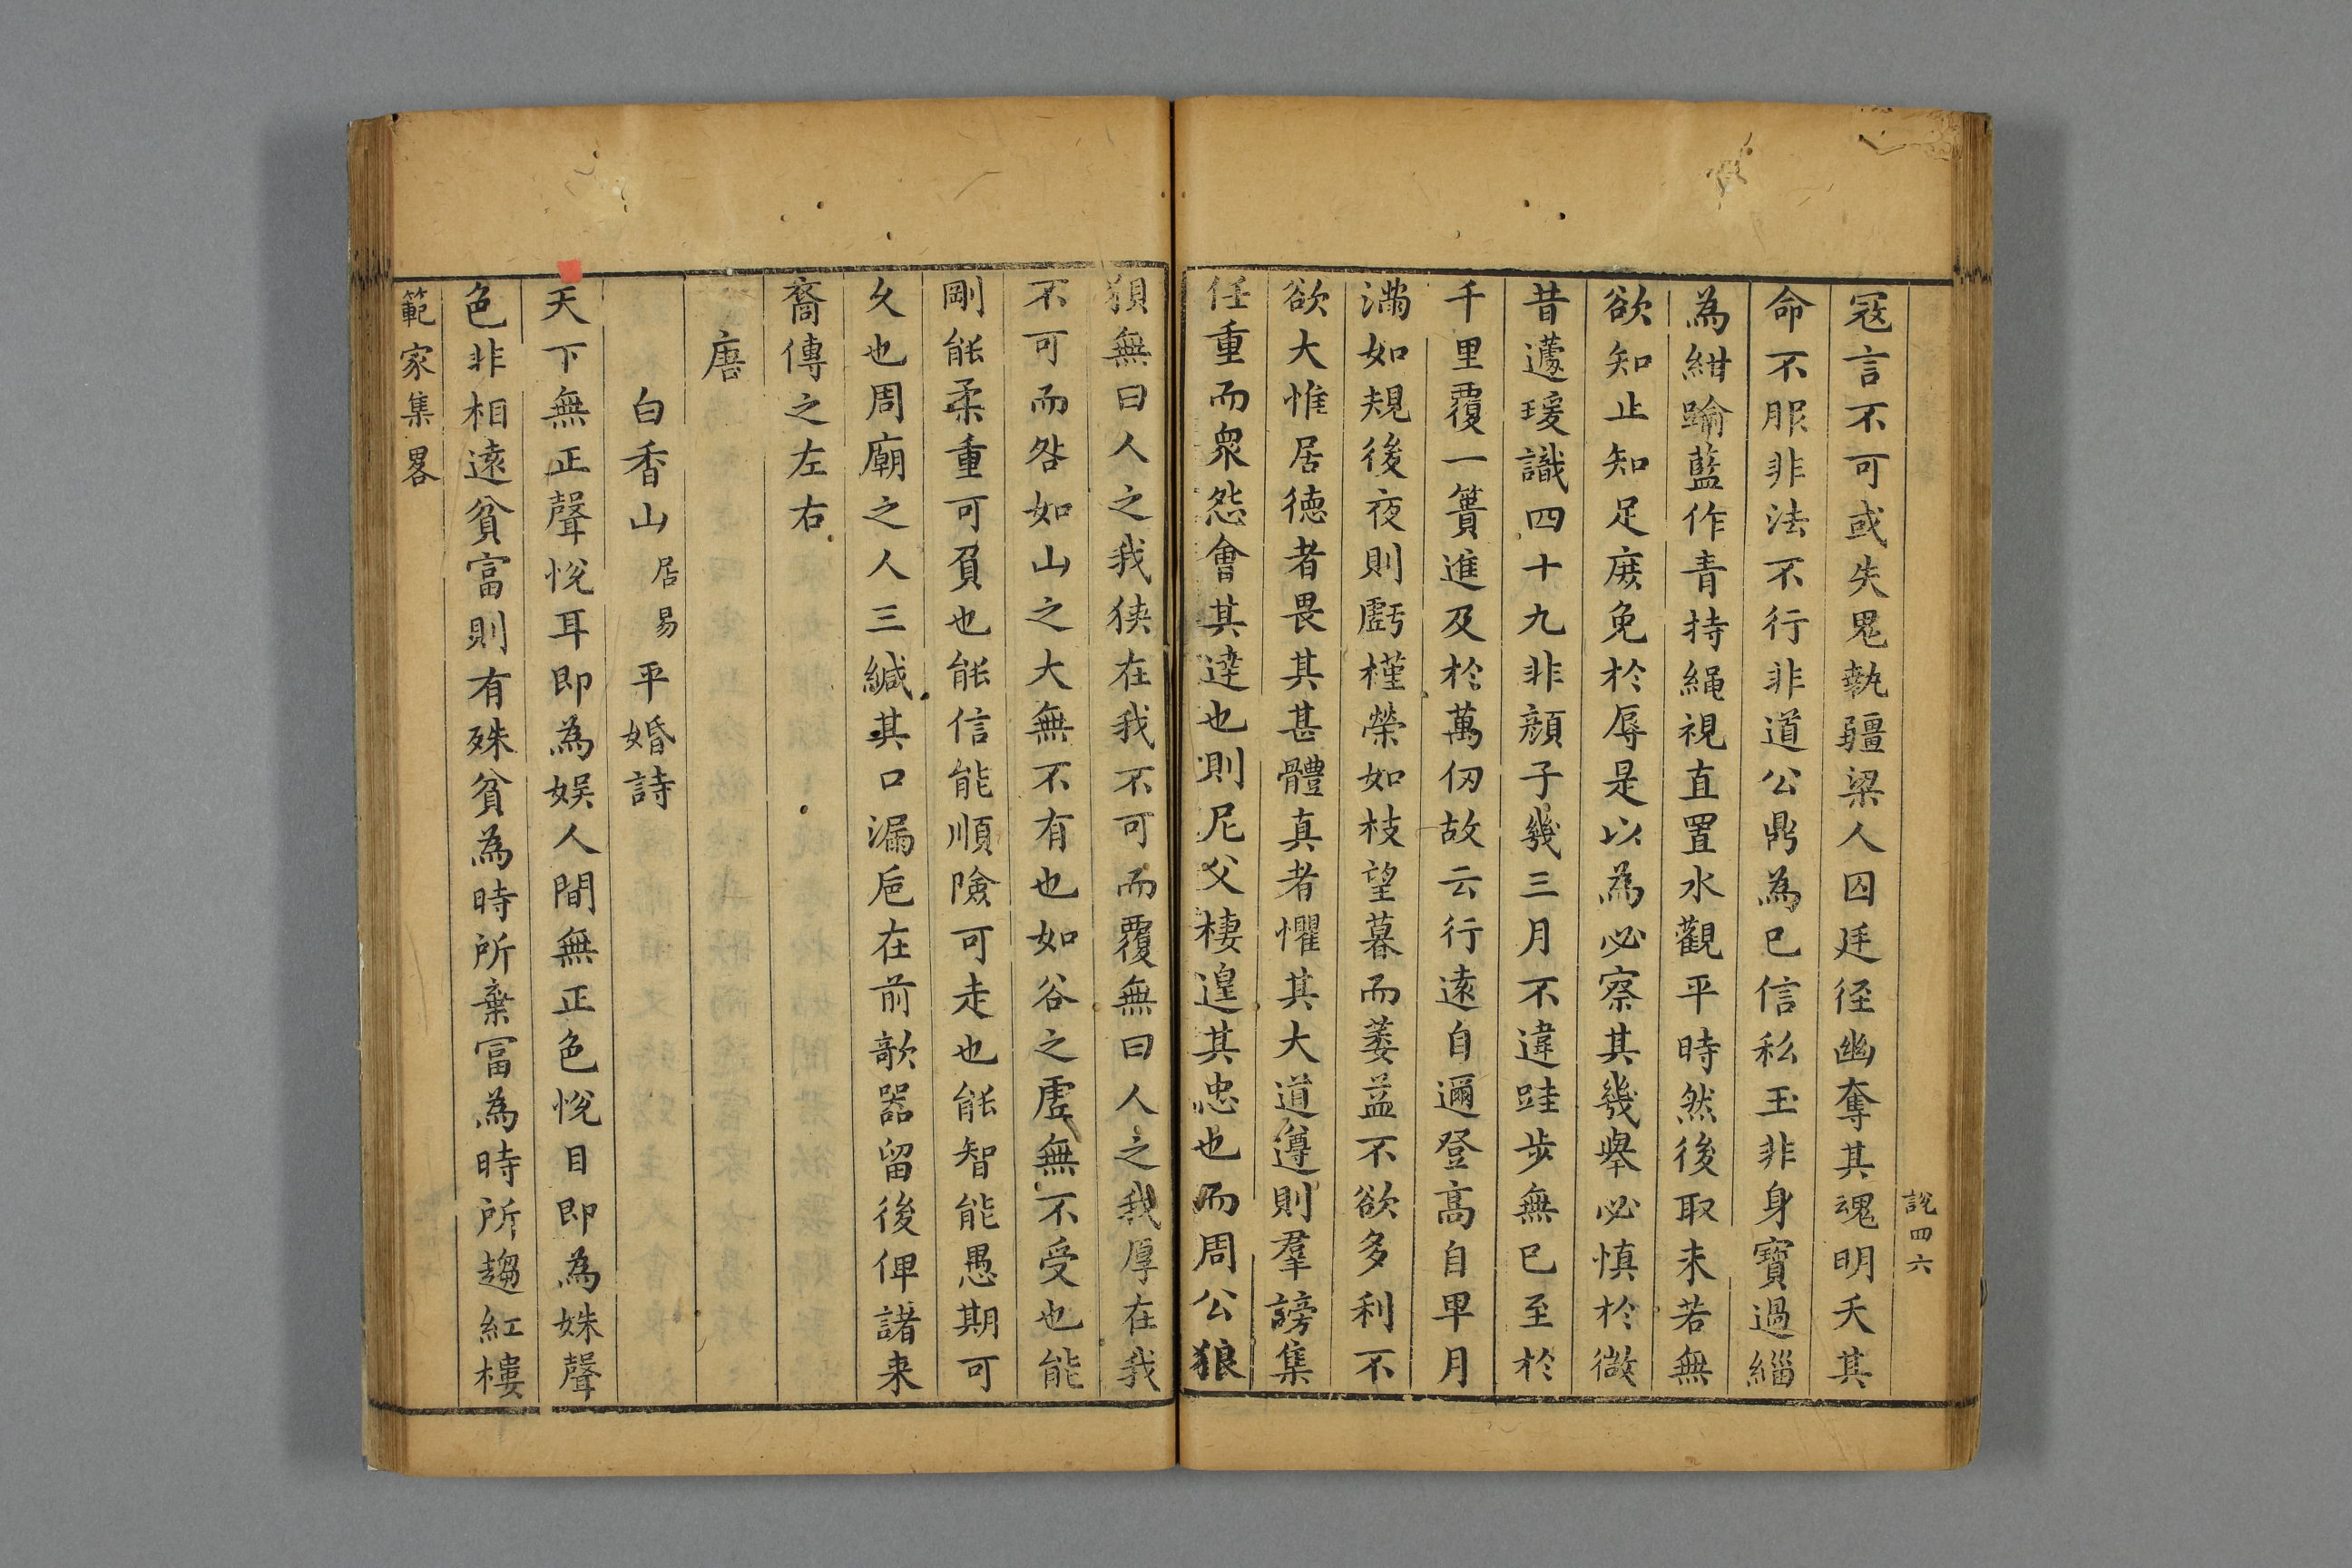 說四六
冦言不可或失鬼執疆梁人囚廷徑幽奪其魂明夭其
命不服非法不行非道公鼎為已信私玉非身寶過緇
為紺踰藍作青持繩視直置水觀平時然後取未若無
欲知止知足庻免於辱是以為必察其幾舉必慎於微
昔蘧瑗識四十九非顔子幾三月不違跬步無已至於
千里覆一簣進及於萬仞故云行逺自邇登髙自卑月
滿如規後夜則虧槿榮如枝望暮而萎益不欲多利不
欲大惟居徳者畏其甚體真者懼其大道遵則羣謗集
任重而衆怨會其逹也則尼父棲遑其忠也而周公狼
狽無曰人之我狹在我不可而覆無曰人之我厚在我
不可而咎如山之大無不有也如谷之虛無不受也能
剛能柔重可負也能信能順險可走也能智能愚期可
乆也周廟之人三緘其口漏巵在前欹器留後俾諸来
裔傳之左右
唐
白香山居易 平婚詩
天下無正聲悅耳即為娱人間無正色悅目即為姝聲
色非相逺貧富則有殊貧為時所棄冨為時所趨紅樓
範家集畧